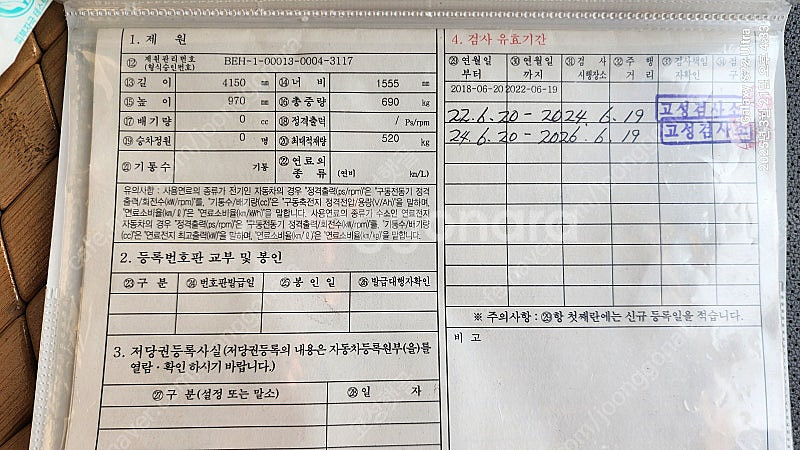 1. 제 원
⑫ 제원관리번호 (형식승인번호) BEH-1-00013-0004-3117
⑬ 길 이 4150 ㎜ ⑭ 너 비 1555 ㎜
⑮ 높 이 970 ㎜ ⑯ 총중량 690 kg
⑰ 배기량 0 cc ⑱ 정격출력 / Ps/rpm
⑲ 승차정원 0 명 ⑳ 최대적재량 520 kg
㉑ 기통수 기통 ㉒ 연료의 종류 (연비 km/L)
유의사항 : 사용연료의 종류가 전기인 자동차의 경우 "정격출력(ps/rpm)"은 "구동전동기 정격
출력/회전수(kW/rpm)"를, "기통수/배기량(cc)"은 "구동축전지 정격전압/용량(V/Ah)"을 말하며,
"연료소비율(㎞/ℓ)"은 "연료소비율(㎞/kWh)"을 말합니다. 사용연료의 종류가 수소인 연료전지
자동차의 경우 "정격출력(ps/rpm)"은 "구동전동기 정격출력/회전수(kW/rpm)"를, "기통수/배기량
(cc)"은 "연료전지 최고출력(kW)"을 말하며, "연료소비율(㎞/ℓ)"은 "연료소비율(㎞/kg)"을 말합니다.
2. 등록번호판 교부 및 봉인
㉓ 구 분 ㉔ 번호판발급일 ㉕ 봉 인 일 ㉖ 발급대행자확인
3. 저당권등록사실(저당권등록의 내용은 자동차등록원부(을)를
열람 · 확인 하시기 바랍니다.)
㉗ 구 분(설정 또는 말소) ㉘ 일 자
4. 검사 유효기간
㉙ 연월일 부터 ㉚ 연월일 까지 ㉛ 검 사 시행장소 ㉜ 주 행 거 리 ㉝ 검사책임 자확인 ㉞ 검 구
2018-06-20 2022-06-19
22. 6. 20 - 2024. 6. 19 고성검사소
24. 6. 20 - 2026. 6. 19 고성검사소
※ 주의사항 : ㉙항 첫째란에는 신규 등록일을 적습니다.
비 고